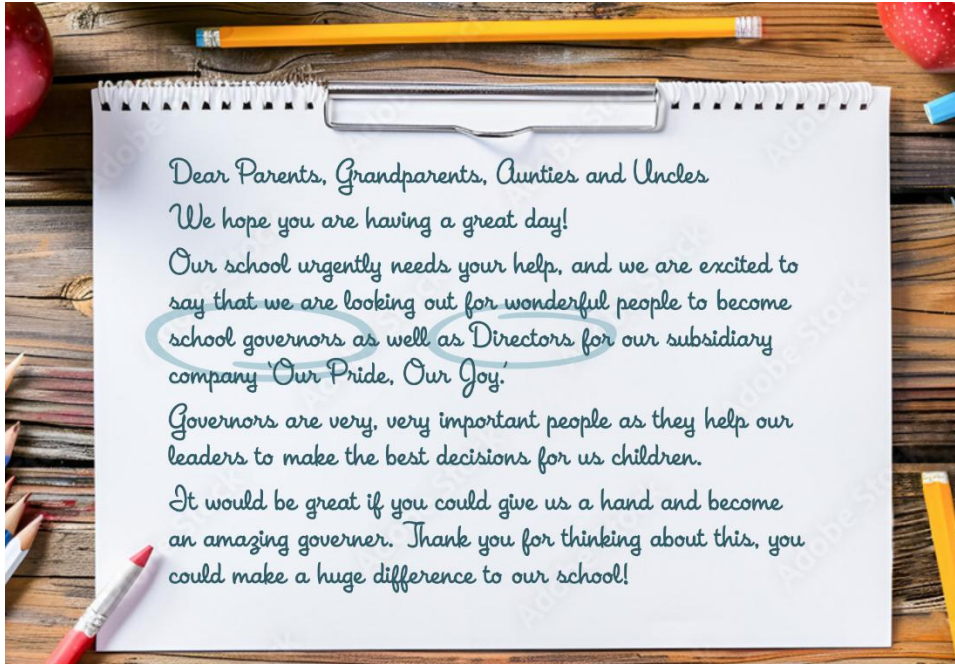 Dear Parents, Grandparents, Aunties and Uncles
We hope you are having a great day!
Our school urgently needs your help, and we are excited to
say that we are looking out for wonderful people to become
school governors as well as Directors for our subsidiary
company 'Our Pride, Our Joy.'
Governors are very, very important people as they help our
leaders to make the best decisions for us children.
It would be great if you could give us a hand and become
an amazing governer. Thank you for thinking about this, you
could make a huge difference to our school!
Adobe Stock